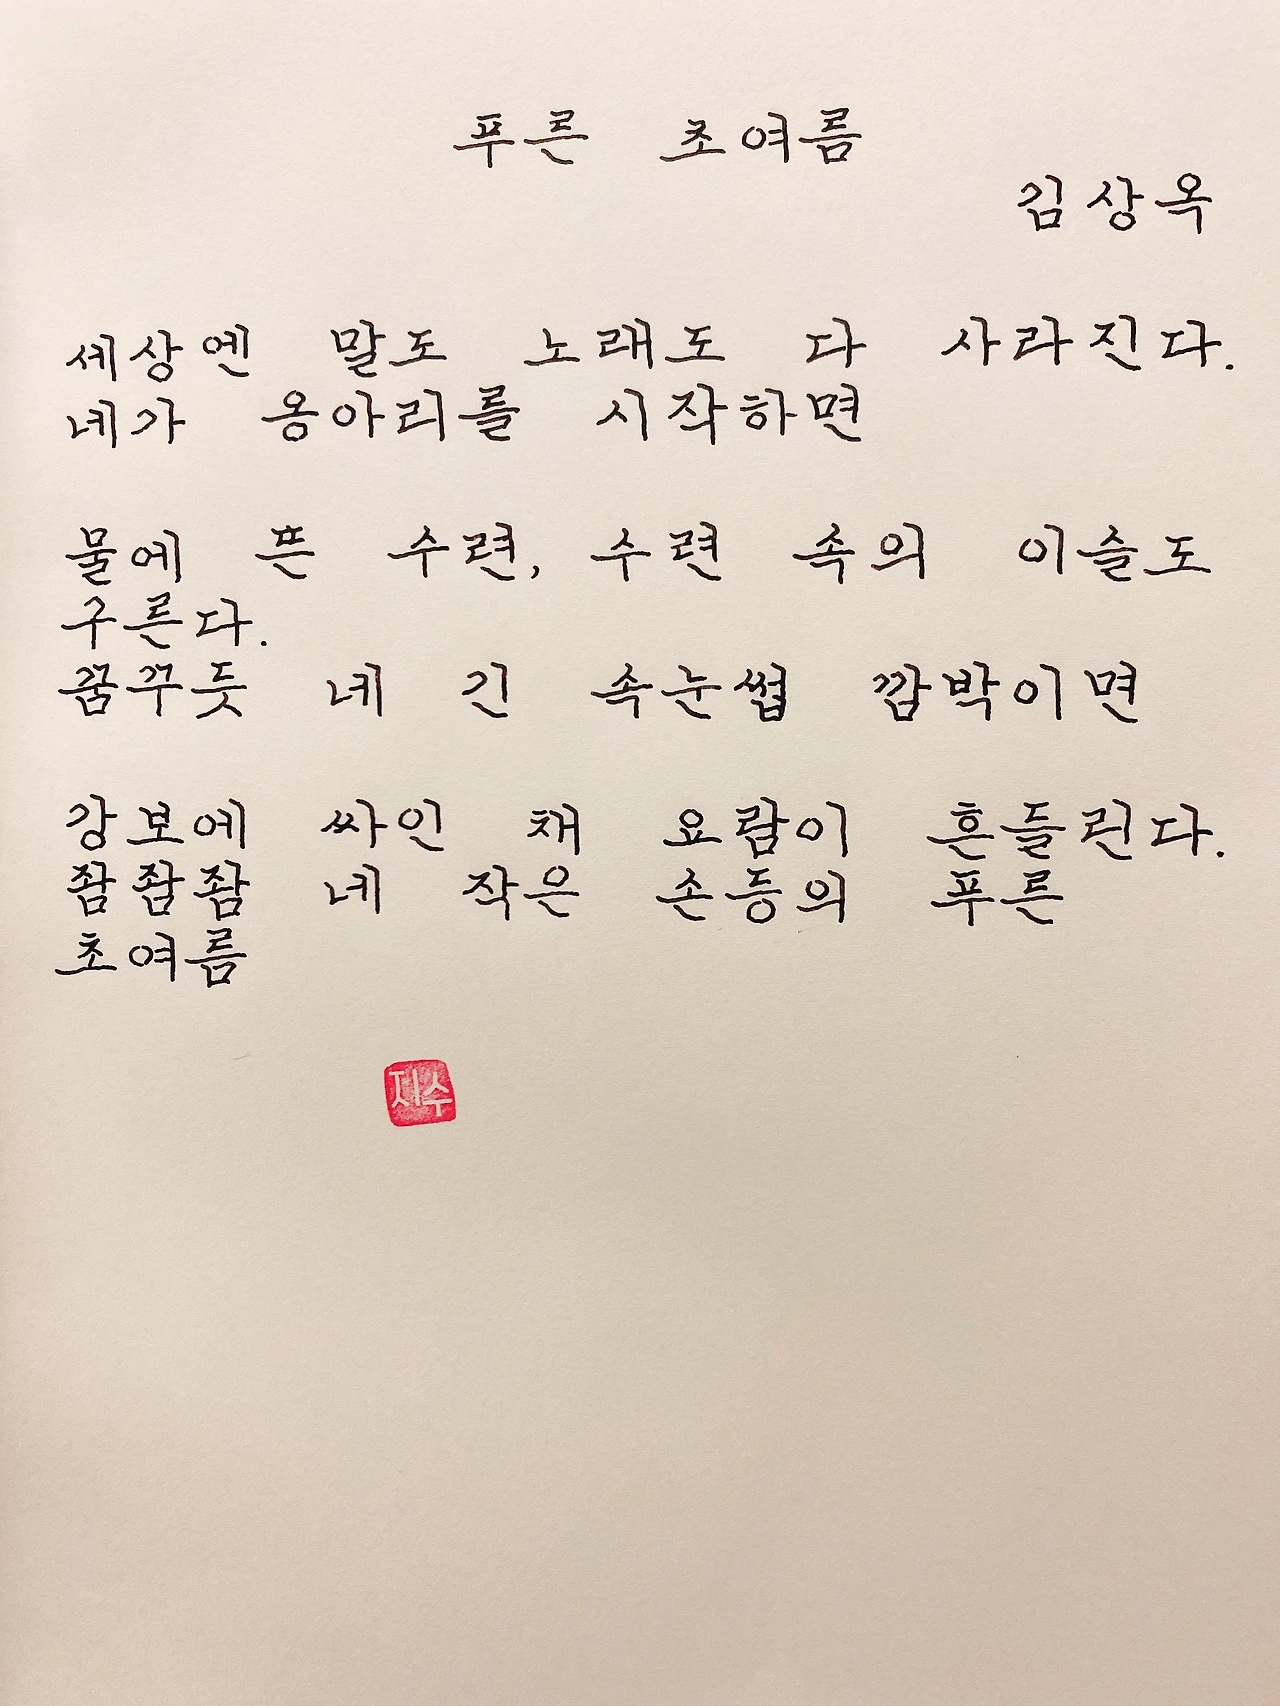 푸른 초여름
김상옥
세상엔 말도 노래도 다 사라진다.
네가 옹아리를 시작하면
물에 뜬 수련, 수련 속의 이슬도
구른다.
꿈꾸듯 네 긴 속눈썹 깜박이면
강보에 싸인 채 요람이 흔들린다.
좜좜좜 네 작은 손등의 푸른
초여름
지수